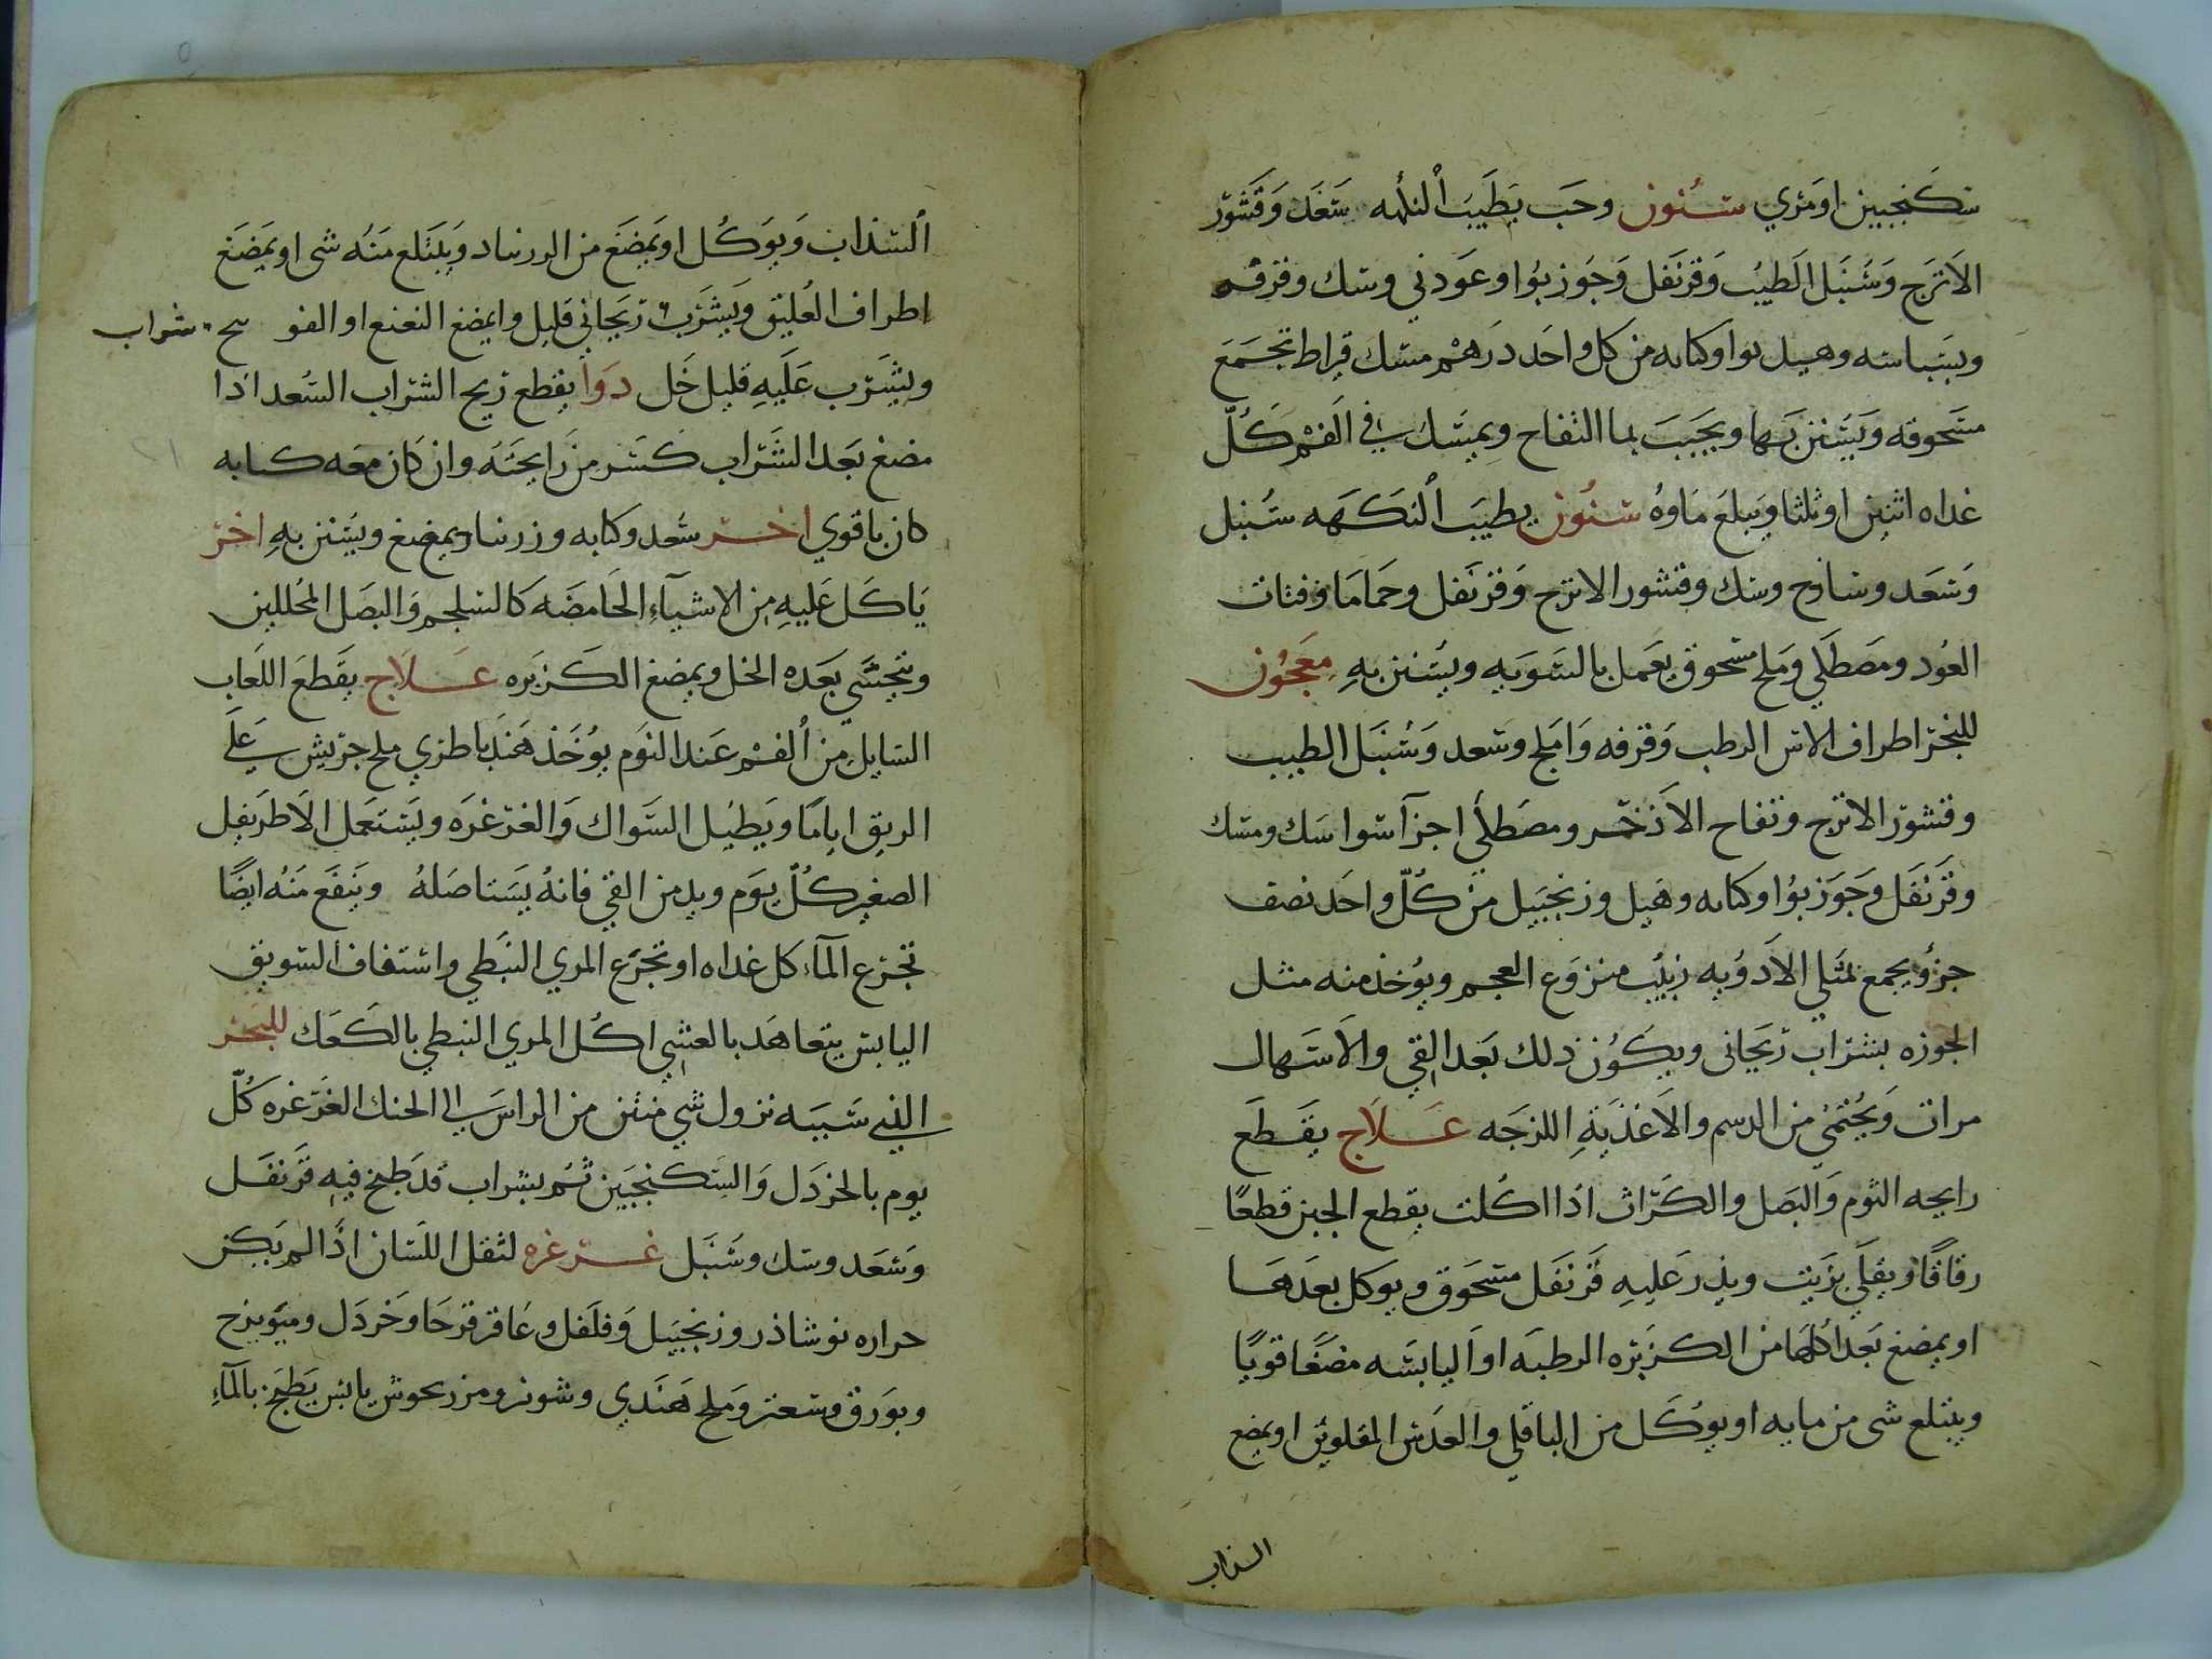 سكنجبين او مري سنون وحب يطيب النكهه سعد وقشور
الاترج وسنبل الطيب وقرنفل وجوز بوا وعود ني وسك وقرفه
وبسباسه وهيل بوا وكبابه من كل واحد درهم مسك قيراط تجمع
مسحوقه ويستنن بها ويحبب بما التفاح ويمسك في الفم كل
غداه اثنين او ثلثا ويبلع ماوه سنون يطيب النكهه سنبل
وسعد وساذج وسك وقشور الاترج وقرنفل وحماما وفتات
العود ومصطكي وملح مسحوق يعمل بالسويه ويستنن به معجون
للبخر اطراف الاس الرطب وقرفه واملج وسعد وسنبل الطيب
وقشور الاترج وتفاح الاذخر ومصطكي اجزآ سوا سك ومسك
وقرنفل وجوز بوا وكبابه وهيل وزنجبيل من كل واحد نصف
جزؤ يجمع بمثلي الادويه زبيب منزوع العجم ويوخذ منه مثل
الجوزه بشراب ريحاني ويكون ذلك بعد القي والاسهال
مرات ويحتمي من الدسم والاغذية اللزجه علاج يقطع
رايحه الثوم والبصل والكراث اذا اكلت يقطع الجبن قطعا
رقاقا ويقلي بزيت ويذر عليه قرنفل مسحوق ويوكل بعدها
او يمضغ بعد اكلها من الكزبره الرطبه او اليابسه مضغا قويا
ويبتلع شي من مايه او يوكل من الباقلي والعدس المقلوين او يمضع
السذاب
السذاب ويوكل او يمضغ من الزرنباد ويبتلع منه شي او يمضغ
اطراف العليق ويشرب ريحاني قليل وايمضغ النعنع او الفو سح شراب
ويشرب عليه قليل خل دوا يقطع ريح الشراب السعد اذا
مضغ بعد الشراب كسر من رايحته وان كان معه كبابه
كان باقوي اخر سعد وكبابه وزرنباد يمضغ ويستنن به اخر
ياكل عليه من الاشيآء الحامضه كالسلجم والبصل المخللين
ويتحسي بعده الخل ويمضغ الكزبره علاج يقطع اللعاب
السايل من الفم عند النوم يوخذ هندبا طري ملح جريش علي
الريق اياما ويطيل السواك والغرغره ويستعمل الاطريفل
الصغير كل يوم ويدمن القي فانه يستاصله وينفع منه ايضا
تجرع المآء كل غداه او تجرع المري النبطي واستفاف السويق
اليابس يتعاهد بالعشي اكل المري النبطي بالكعك للبخر
الذي سببه نزول شي منتن من الراس الي الحنك الغرغره كل
يوم بالخردل والسكنجبين ثم بشراب قد طبخ فيه قرنفل
وسعد وسك وسنبل غرغره لثقل اللسان اذا لم يكن
حراره نوشاذر وزنجبيل وفلفل وعاقرقرحا وخردل وميويزج
وبورق وسعتر وملح هندي وشونيز ومرزنجوش يابس يطبخ بالمآء